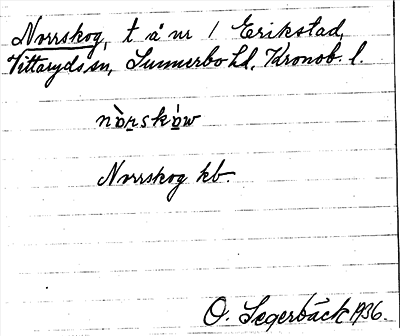 Norrskog, t å nr 1 Erikstad,
Vittaryds sn, Sunnerbo hd, Kronob. l.
nòrskòw
Norrskog kb.
O. Segerbäck 1936.